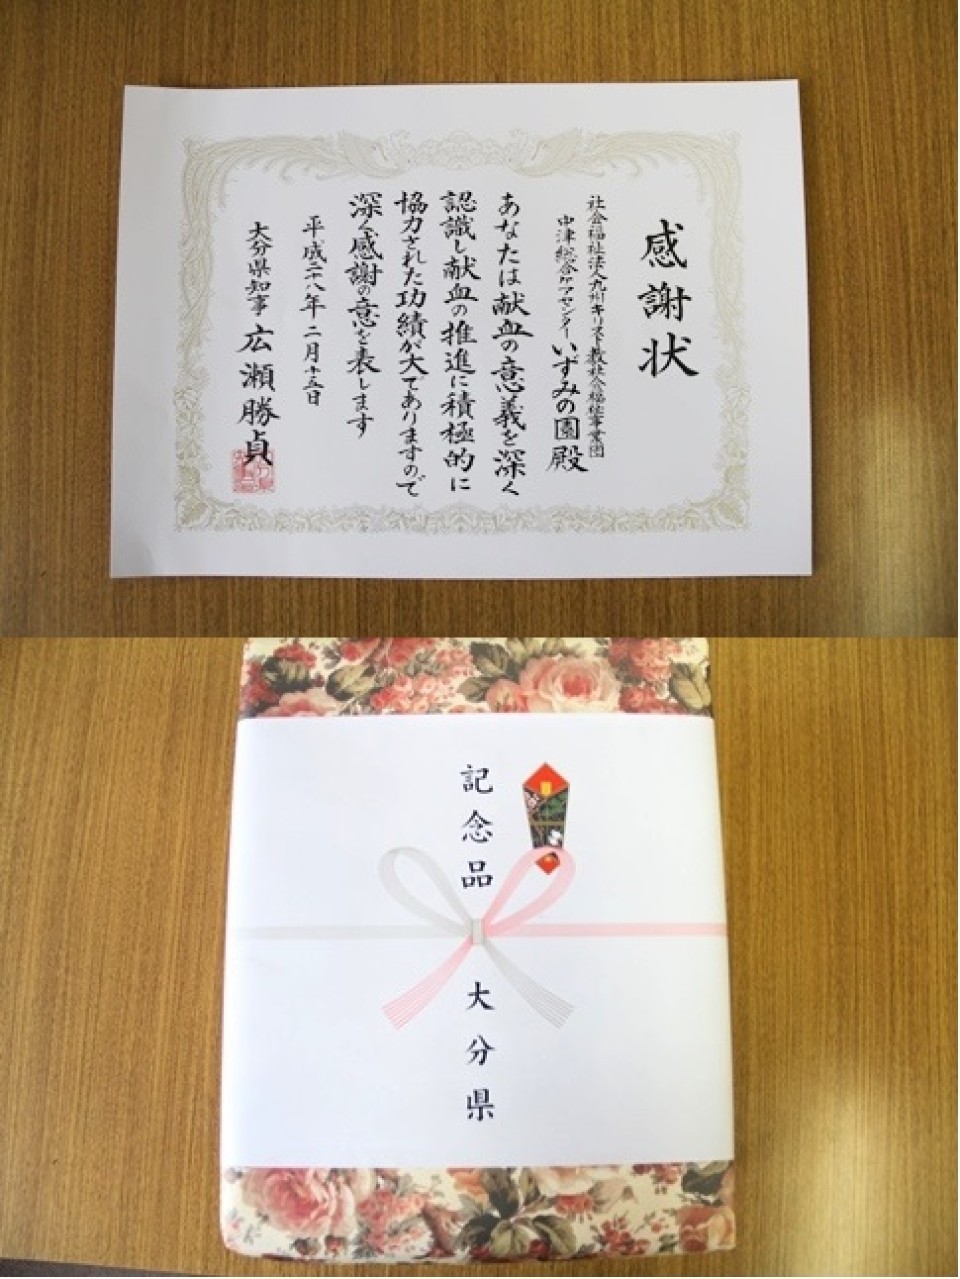 感謝状
社会福祉法人九州キリスト教社会福祉事業団
中津総合ケアセンターいずみの園殿
あなたは献血の意義を深く
認識し献血の推進に積極的に
協力された功績が大でありますので
深く感謝の意を表します
平成二十八年二月十五日
大分県知事 広瀬勝貞
記念品
大分県